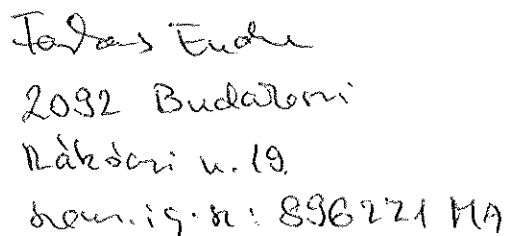 Farkas Endre
2092 Budakeszi
Rákóczi u. 19.
szem.ig.sz: 896221 MA